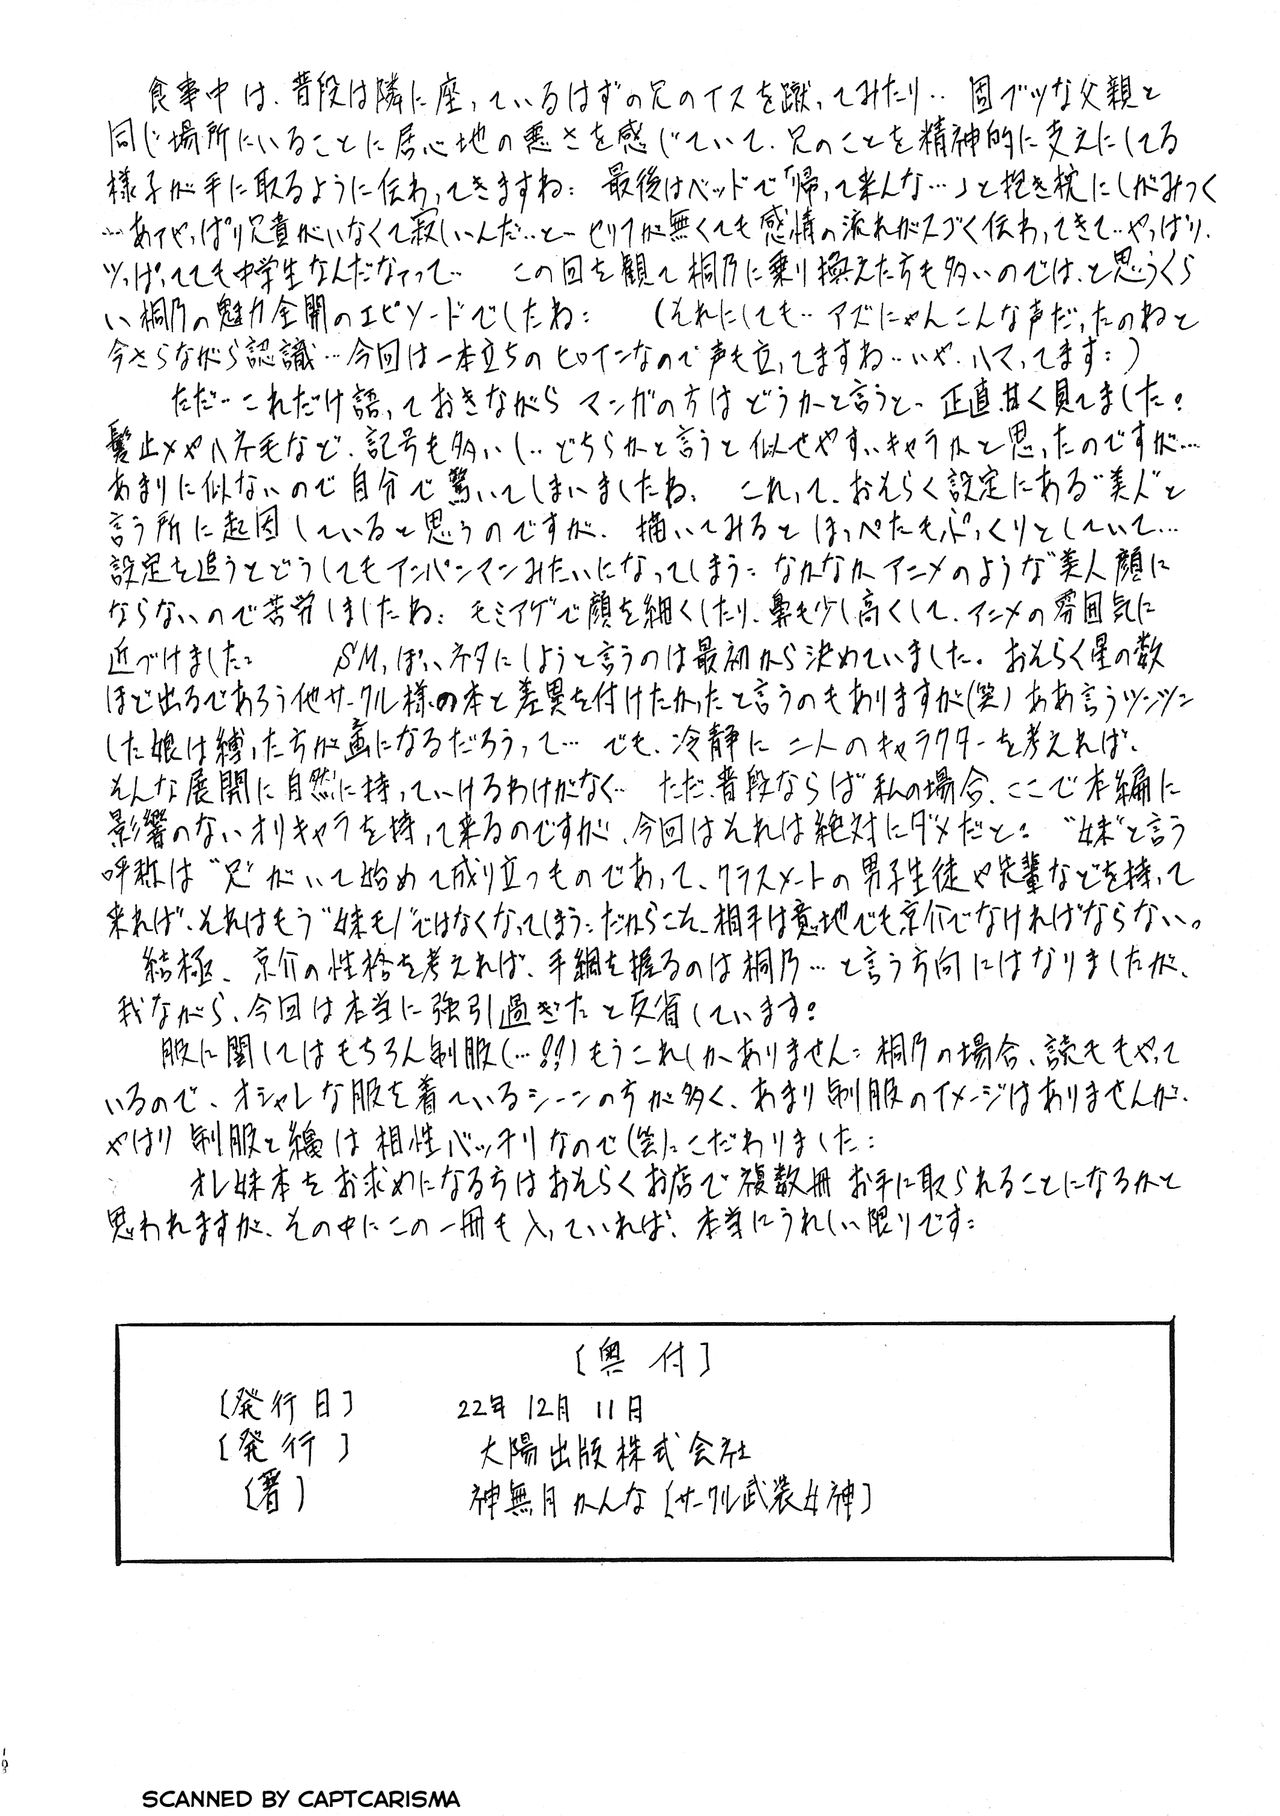 食事中は、普段は隣に座っているはずの兄のイスを蹴ってみたり‥ 固ブツな父親と
同じ場所にいることに居心地の悪さを感じていて、兄のことを精神的に支えにしてる
様子が手に取るように伝わってきますね: 最後はベッドで「帰って来んな…」と抱き枕にしがみつく
…あァやっぱり兄貴がいなくて寂しいんだ‥と― セリフが無くても感情の流れがスゴく伝わってきて‥やっぱり、
ツッぱってても中学生なんだなァって‥ この回を観て桐乃に乗り換えた方も多いのでは、と思うくら
い桐乃の魅力全開のエピソードでしたね: (それにしても‥アズにゃんこんな声だったのねと
今さらながら認識…今回は一本立ちのヒロインなので声も立ってますね‥いや、ハマってます:)
ただ‥これだけ語っておきながらマンガの方はどうかと言うと、正直、甘く見てました。
髪止メやハネ毛など、記号も多いし‥どちらかと言うと似せやすいキャラかと思ったのですが…
あまりに似ないので自分で驚いてしまいましたね、 これって、おそらく設定にある“美人”と
言う所に起因していると思うのですが、描いてみるとほっぺたもぷっくりとしていて…
設定を追うとどうしてもアンパンマンみたいになってしまう: なかなかアニメのような“美人顔に
ならないので苦労しましたね: モミアゲで顔を細くしたり、鼻も少し高くして、アニメの雰囲気に
近づけました: SMっぽいネタにしようと言うのは最初から決めていました。おそらく星の数
ほど出るであろう他サークル様の本と差異を付けたかったと言うのもありますが(笑)ああ言うツンツン
した娘は縛った方が画になるだろうって… でも、冷静に二人のキャラクターを考えれば、
そんな展開に自然に持っていけるわけがなく‥ ただ、普段ならば私の場合、ここで本編に
影響のないオリキャラを持って来るのですが、今回はそれは絶対にダメだと。“妹”と言う
呼称は“兄”がいて始めて成り立つものであって、クラスメートの男子生徒や先輩などを持って
来れば、それはもう“妹モノ”ではなくなってしまう:だからこそ、相手は意地でも京介でなければならない。
結極、京介の性格を考えれば、手綱を握るのは桐乃…と言う方向にはなりましたが、
我ながら、今回は本当に強引過ぎたと反省しています。
服に関してはもちろん制服(…!!)もうこれしかありません: 桐乃の場合、読モもやって
いるので、オシャレな服を着ているシーンの方が多く、あまり制服のイメージはありませんが、
やはり制服と縄は相性バッチリなので(笑)こだわりました:
オレ妹本をお求めになる方はおそらくお店で複数冊お手に取られることになるかと
思われますが、その中にこの一冊も入っていれば、本当にうれしい限りです:
[奥付]
[発行日] 22年12月11日
[発行] 大陽出版株式会社
[著] 神無月かんな[サークル武装女神]
SCANNED BY CAPTCARISMA